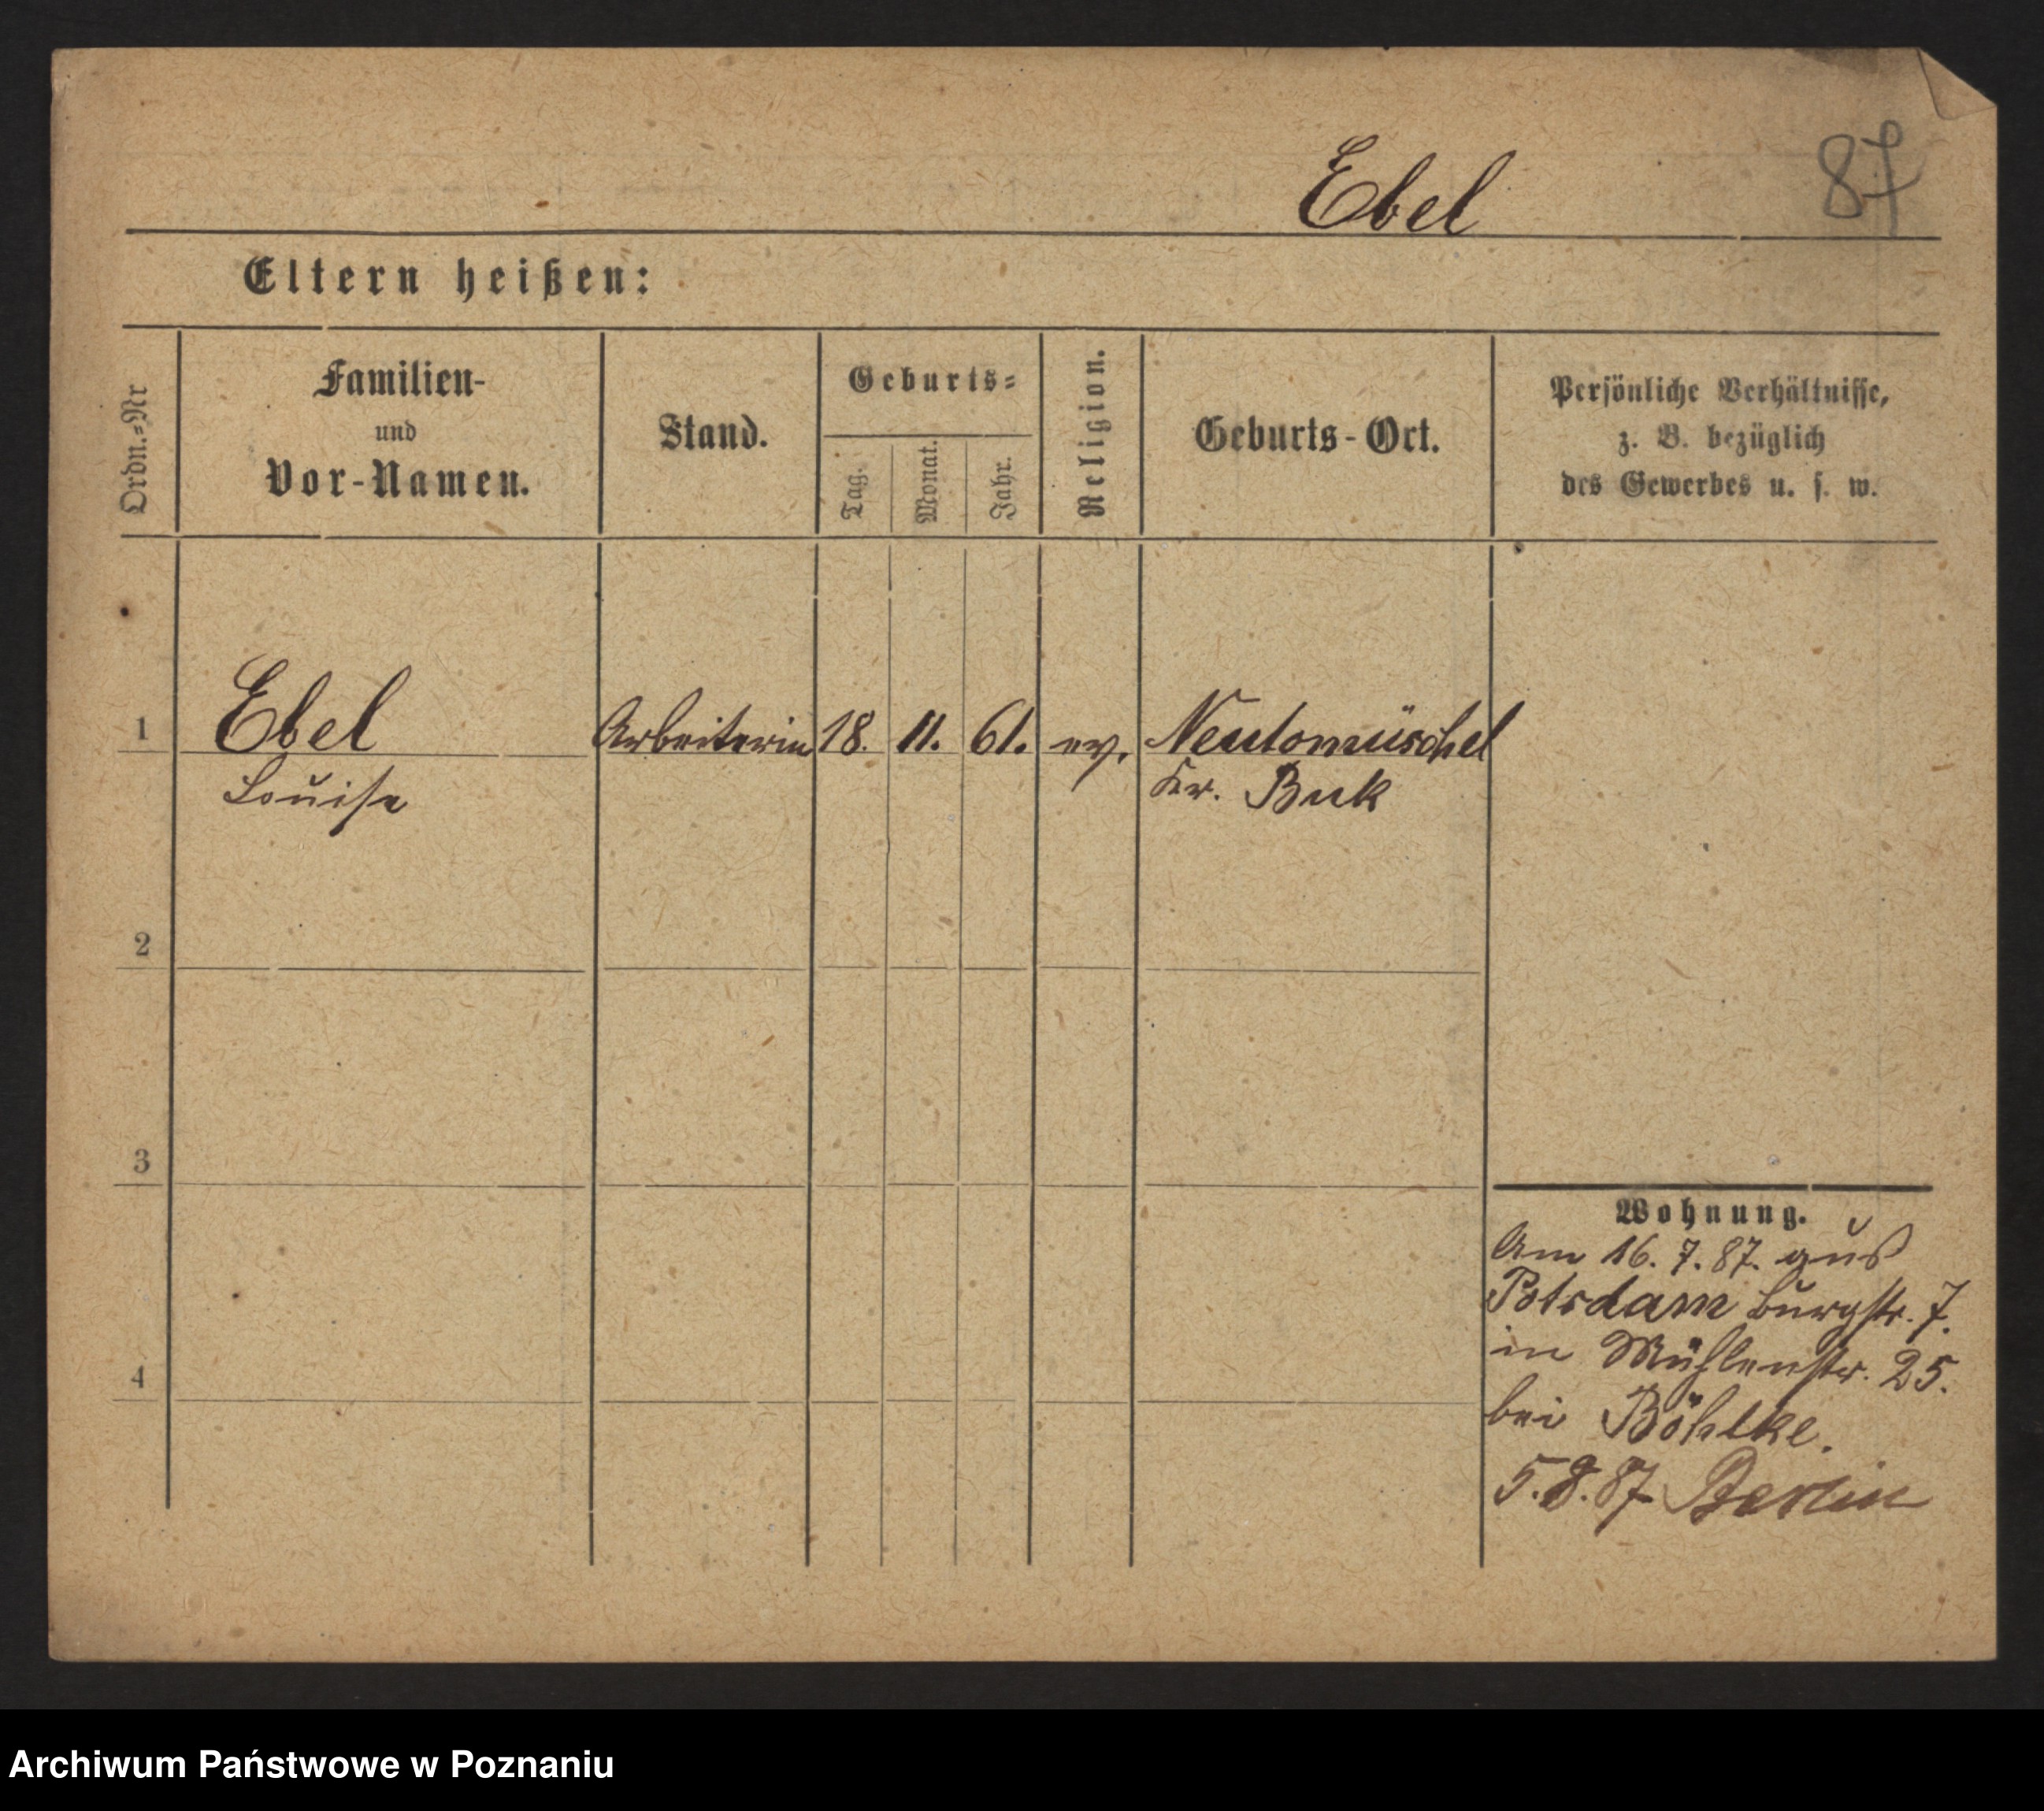 Ebel
87
Eltern heißen:
Ordn.=Nr
Familien-
und
Vor-Namen.
Stand.
Geburts=
Tag.
Monat.
Jahr.
Religion.
Geburts-Ort.
Persönliche Verhältnisse,
z. B. bezüglich
des Gewerbes u. s. w.
1 Ebel Arbeiterin 18. 11. 61. ev. Neutomischel
Louise Kr. Buk
2
3
4
Wohnung.
Am 16. 7. 87. aus
Potsdam Burgstr. 7.
in Mühlenstr. 25.
bei Böhlke.
5.8.87 Berlin
Archiwum Państwowe w Poznaniu